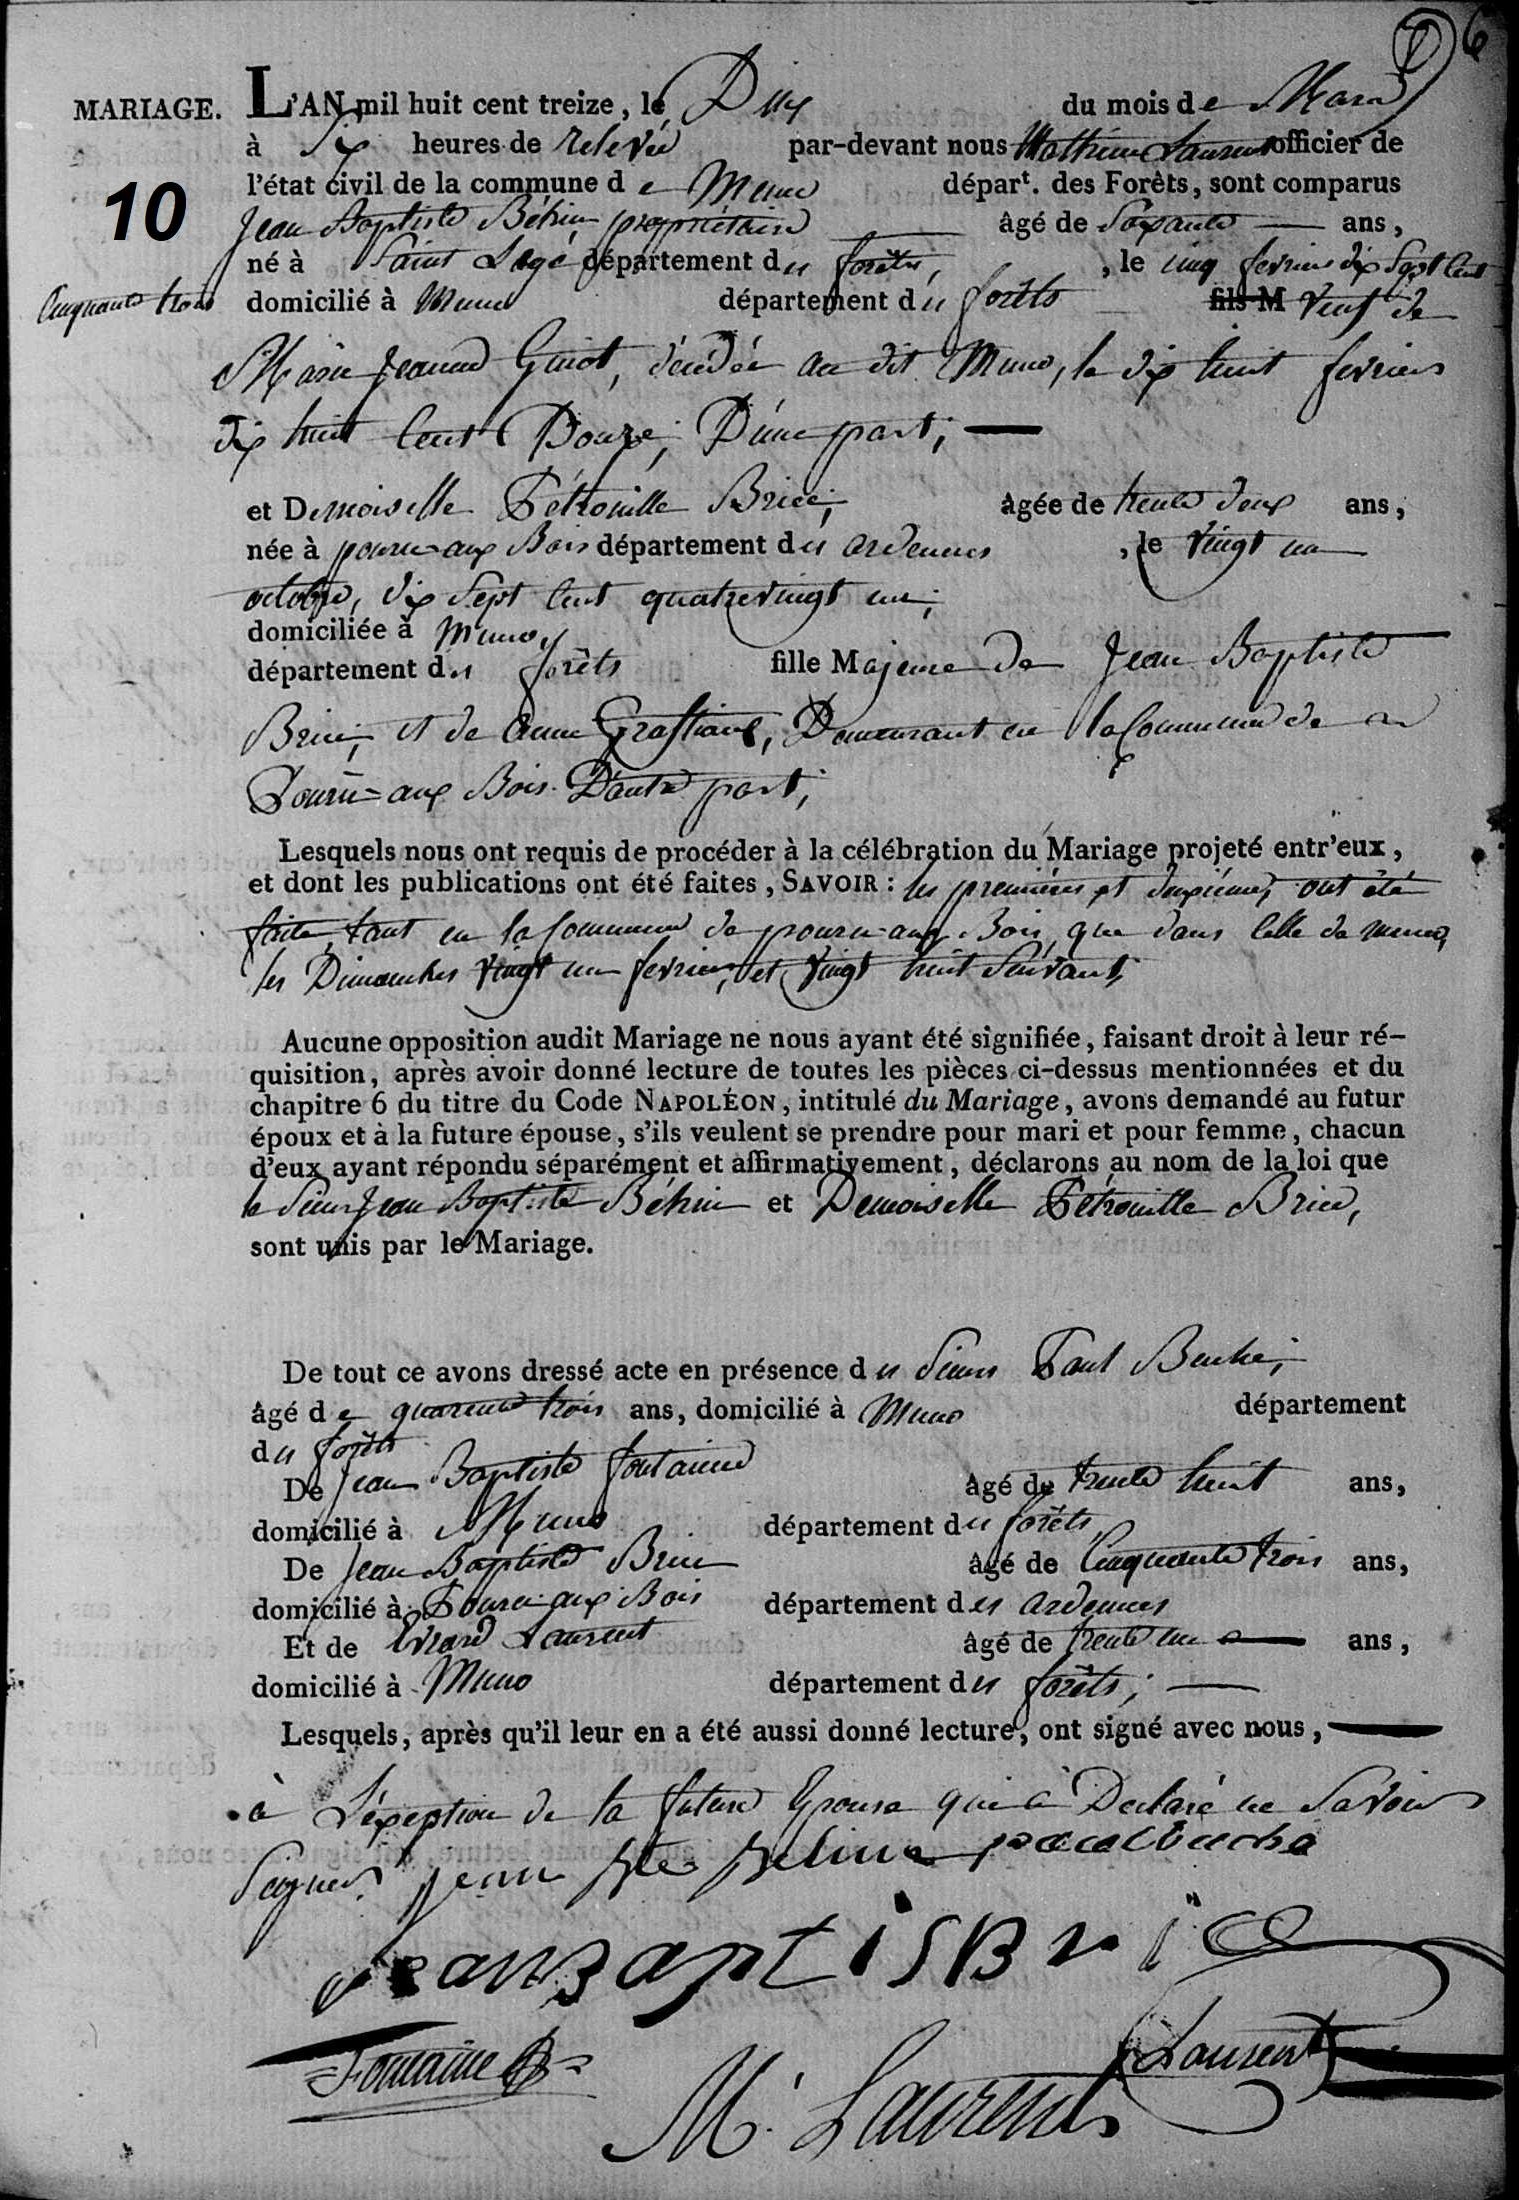 6
MARIAGE. L'AN mil huit cent treize, le Dix du mois de Mars
à Six heures de relevée par-devant nous Mathieu Laurent officier de
l'état civil de la commune de Muno départ. des Forêts, sont comparus
10
Jean Baptiste Béhin propriétaire âgé de Soixante ans,
né à Saint Legé département des forêts, , le cinq fevrier dix Sept Cent
Cinquante trois domicilié à Muno département des forêts fils M veuf de
Marie Jeanne Guiot, décédée au dit Muno, le dix huit fevrier
dix huit Cent Douze, D'une part;
et Demoiselle Pétronille Brice, agée de trente deux ans,
née à pouru-aux Bois département des ardennes , le Vingt un
octobre, dix Sept Cent quatrevingt un;
domiciliée à Muno
département des forêts fille Majeure de Jean Baptiste
Brice, et de Anne Demeurant en la Commune de
Pouru-aux Bois D'autre part;
Lesquels nous ont requis de procéder à la célébration du Mariage projeté entr'eux,
et dont les publications ont été faites, SAVOIR : les premières et duxiemes ont été
faite, tant en la Commune de pouru-aux-Bois, que dans Celle de muno,
les Dimanches Vingt un fevrier, et Vingt huit Suivant;
Aucune opposition audit Mariage ne nous ayant été signifiée, faisant droit à leur ré-
quisition, après avoir donné lecture de toutes les pièces ci-dessus mentionnées et du
chapitre 6 du titre du Code NAPOLÉON, intitulé du Mariage, avons demandé au futur
époux et à la future épouse, s'ils veulent se prendre pour mari et pour femme, chacun
d'eux ayant répondu séparément et affirmativement, déclarons au nom de la loi que
le Sieur Jean Baptiste Béhin et Demoiselle Pétronille Brice,
sont unis par le Mariage.
De tout ce avons dressé acte en présence des Sieurs Paul Buché,
âgé de quarente trois ans, domicilié à Muno département
des forêts
De Jean Baptiste fontaine âgé de trente huit ans,
domicilié à Muno département des forêts,
De Jean Baptiste Brice âgé de Cinquante trois ans,
domicilié à Pouru-aux Bois département des ardennes
Et de Evrard Laurent âgé de trente un ans,
domicilié à Muno département des forêts;
Lesquels, après qu'il leur en a été aussi donné lecture, ont signé avec nous,
à L'exeption de la future Epouse qui à Declaré ne Savoir
Signer. jean Bte behin paul buché
jean Baptis Brice
Fontaine Laurent
M. Laurent